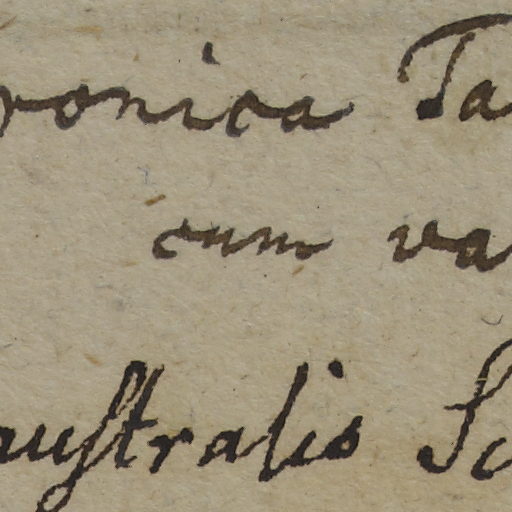 ronica Ta
cum va
auſtralis Sc